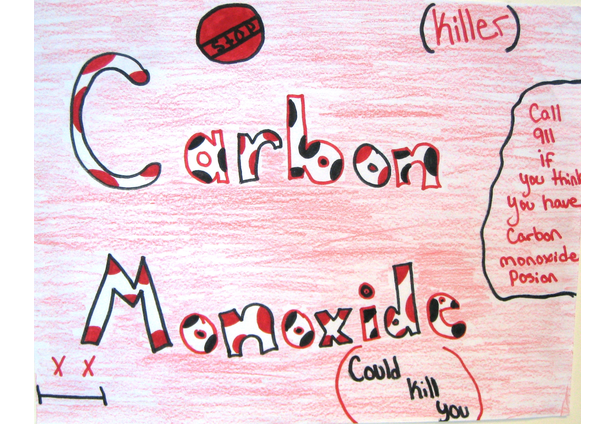 STOP
(Killer)
Carbon
Call
911
if
you think
you have
Carbon
monoxide
Posion
Monoxide
X X
(Could
kill
you)